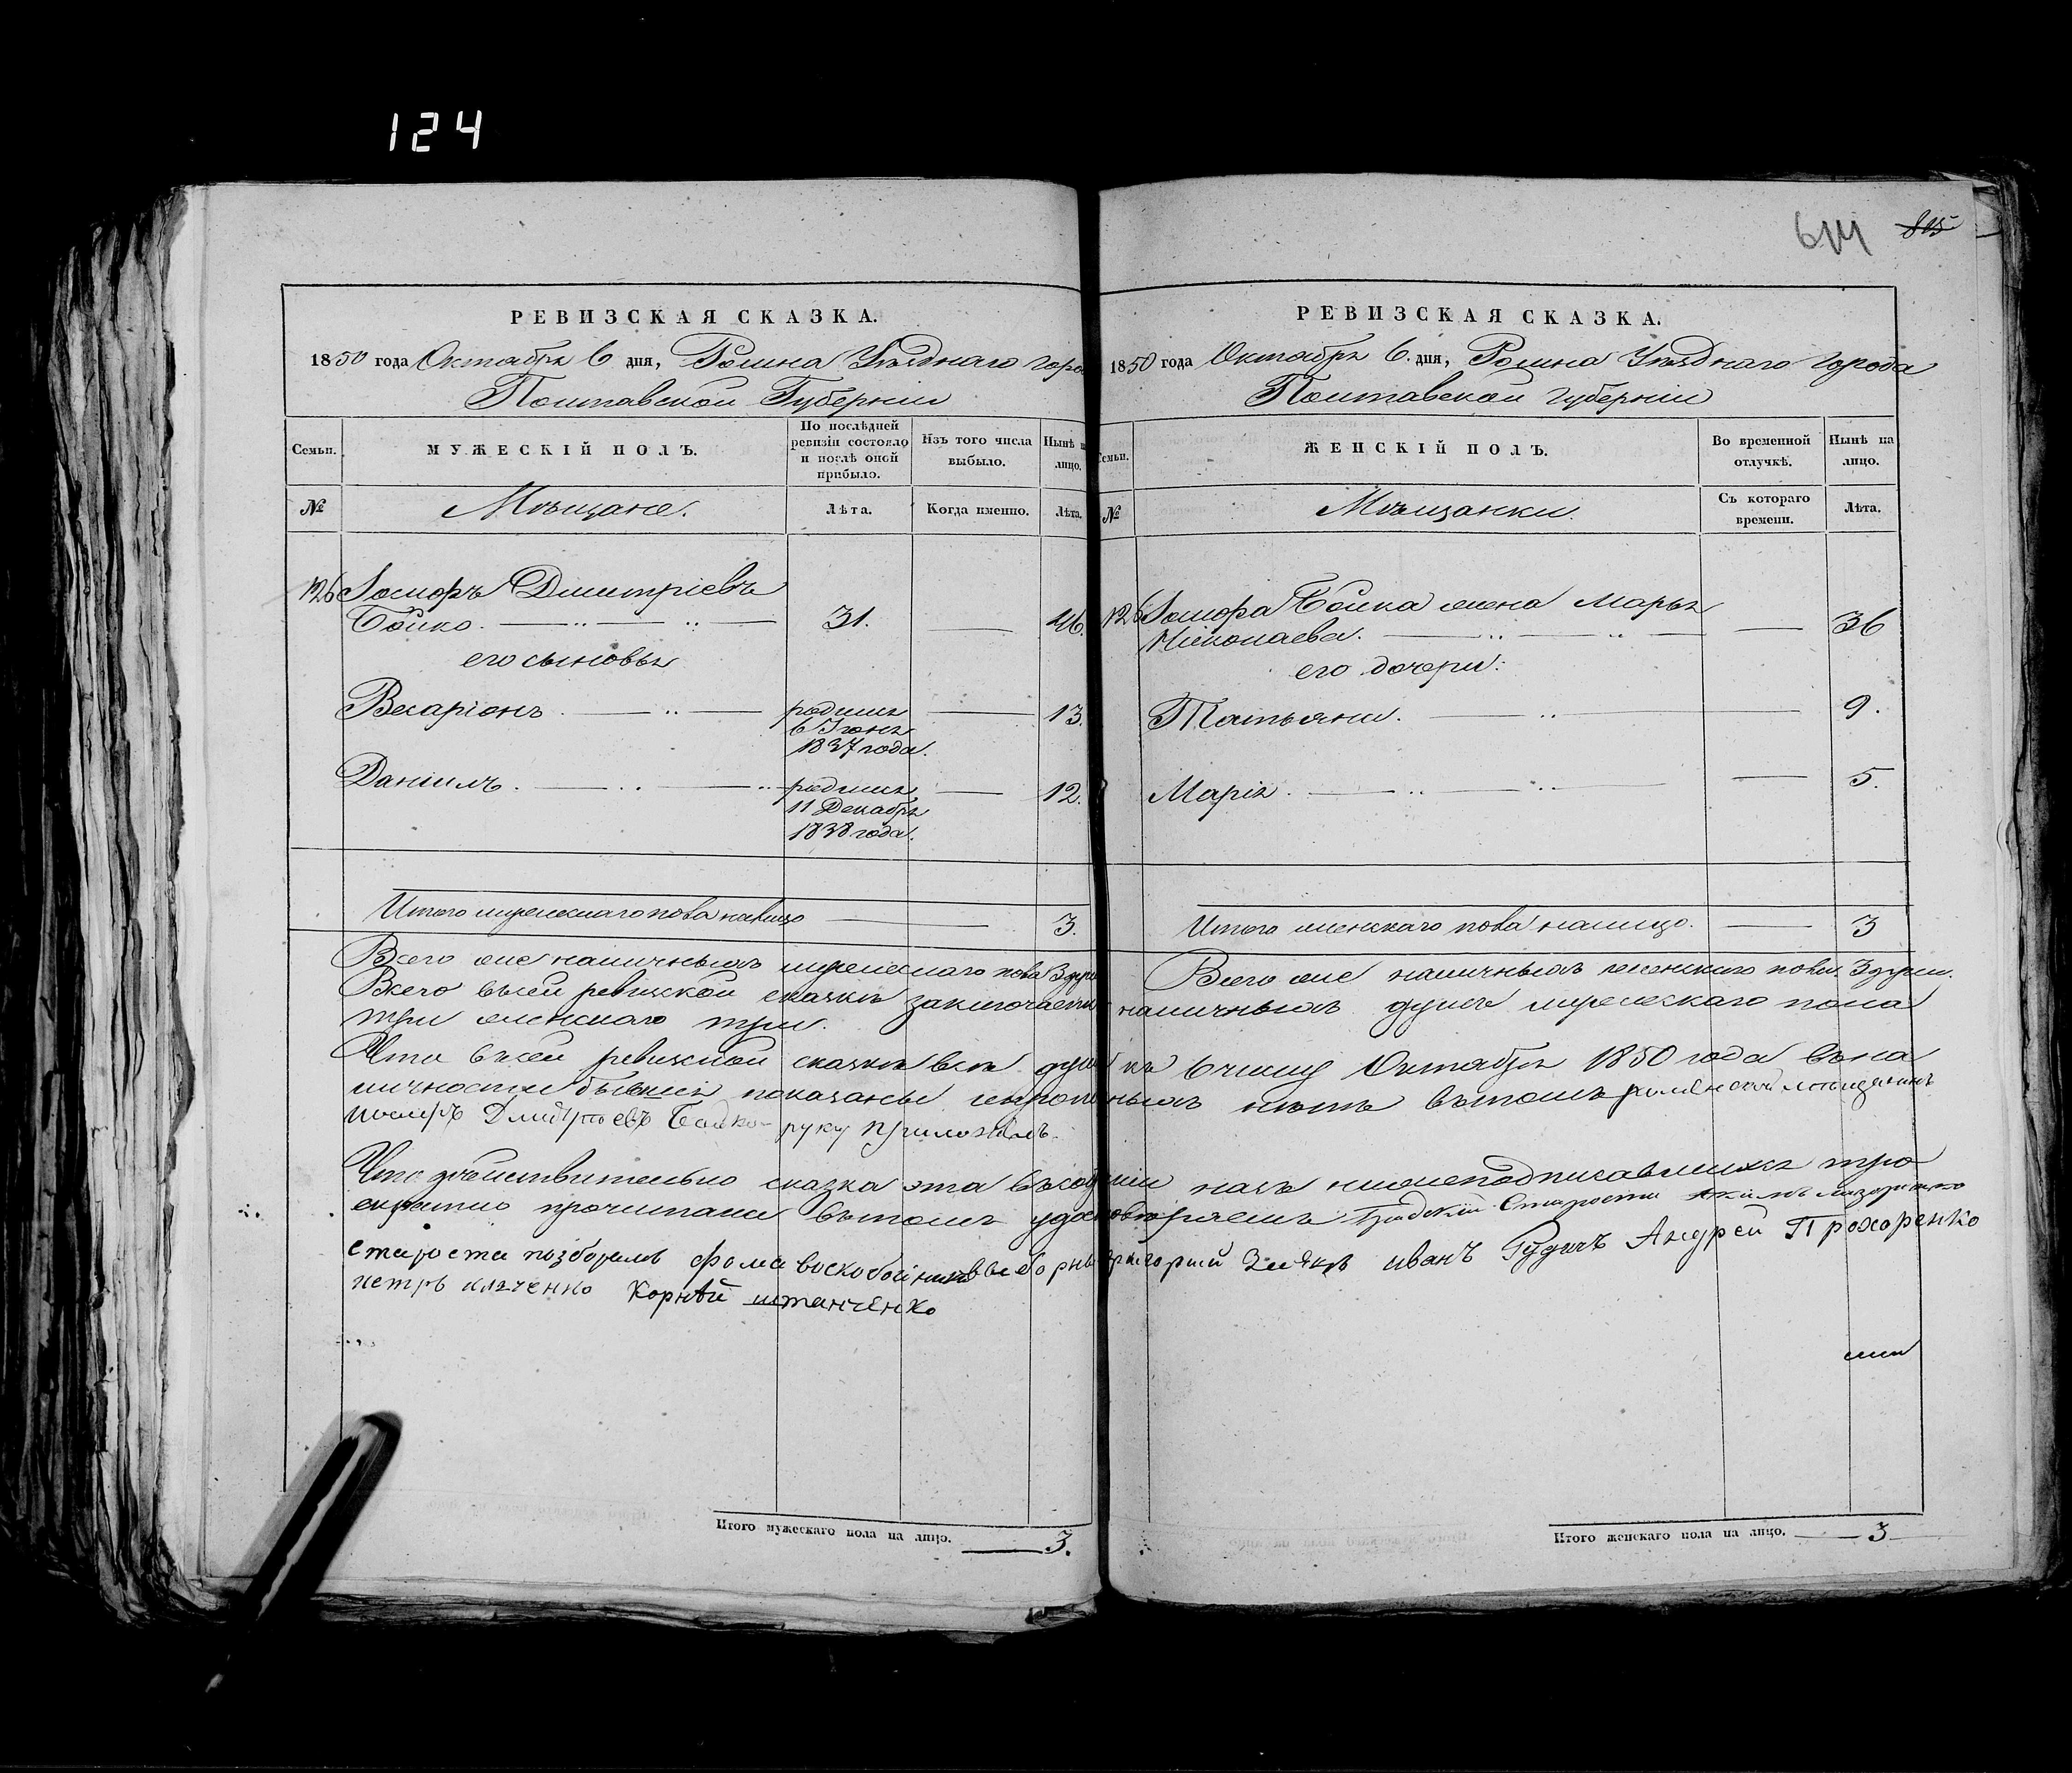 124
614 815
РЕВИЗСКАЯ СКАЗКА.
1850 года Октября 6 дня, Ромна Уѣзднаго горо
Полтавской Губерніи
Семьи.
МУЖЕСКІЙ ПОЛЪ.
По послѣдней ревизіи состояло и послѣ оной прибыло.
Изъ того числа выбыло.
Нынѣ на лицо.
№
Мѣщане.
Лѣта.
Когда именно.
Лѣта.
126 Іосифъ Дмитріевъ
Бойко. 31. 46.
его сыновья
Весаріонъ родился 13.
6 Іюня
1837 года.
Даніилъ. родился 12.
11 Декабря
1838 года.
Итого мужескаго пола налицо 3.
РЕВИЗСКАЯ СКАЗКА.
1850 года Октября 6. дня, Ромна Уѣзднаго города
Полтавской Губерніи
Семьи.
ЖЕНСКІЙ ПОЛЪ.
Во временной отлучкѣ.
Нынѣ на лицо.
№
Мѣщанки.
Съ котораго времени.
Лѣта.
126 Іосифа Бойка жена Марья
Николаева. 36
его дочери:
Татьяна. 9.
Марія. 5.
Итого женскаго пола налицо. 3
Всего же наличныхъ мужескаго пола 3 душ
Всего же наличныхъ женскаго пола 3 души.
Всего въсей ревизской сказкѣ заключается наличныхъ душъ мужескаго пола
три женскаго три.
Что въсей ревизской сказкѣ всѣ души къ 6 числу Октября 1850 года въна
личности бывшія показаны и прописныхъ нѣтъ вътомъ роменской мѣщанинъ
Іосифъ Дмитріевъ Бойко руку приложилъ.
Что дѣйствительно сказка эта въсобраніи насъ нижеподписавшихся тро
екратно прочитана вътомъ удостовѣряемъ Градскій Староста Якимъ
староста позборамъ фома воскобойникъ выборны григорий иванъ Гудичъ Андрей Прохоренко
петръ Корнѣй штанченко
Итого мужескаго пола на лицо. 3.
Итого женскаго пола на лицо. 3